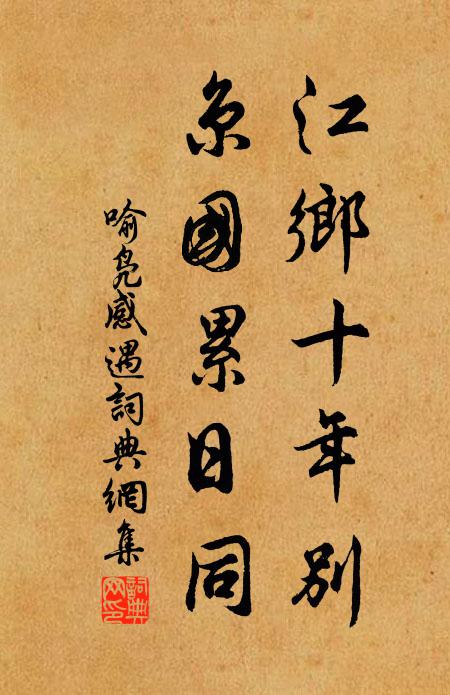 江鄉十年別
京國累日同
喻鳧感遇詞典網集
詞典网印